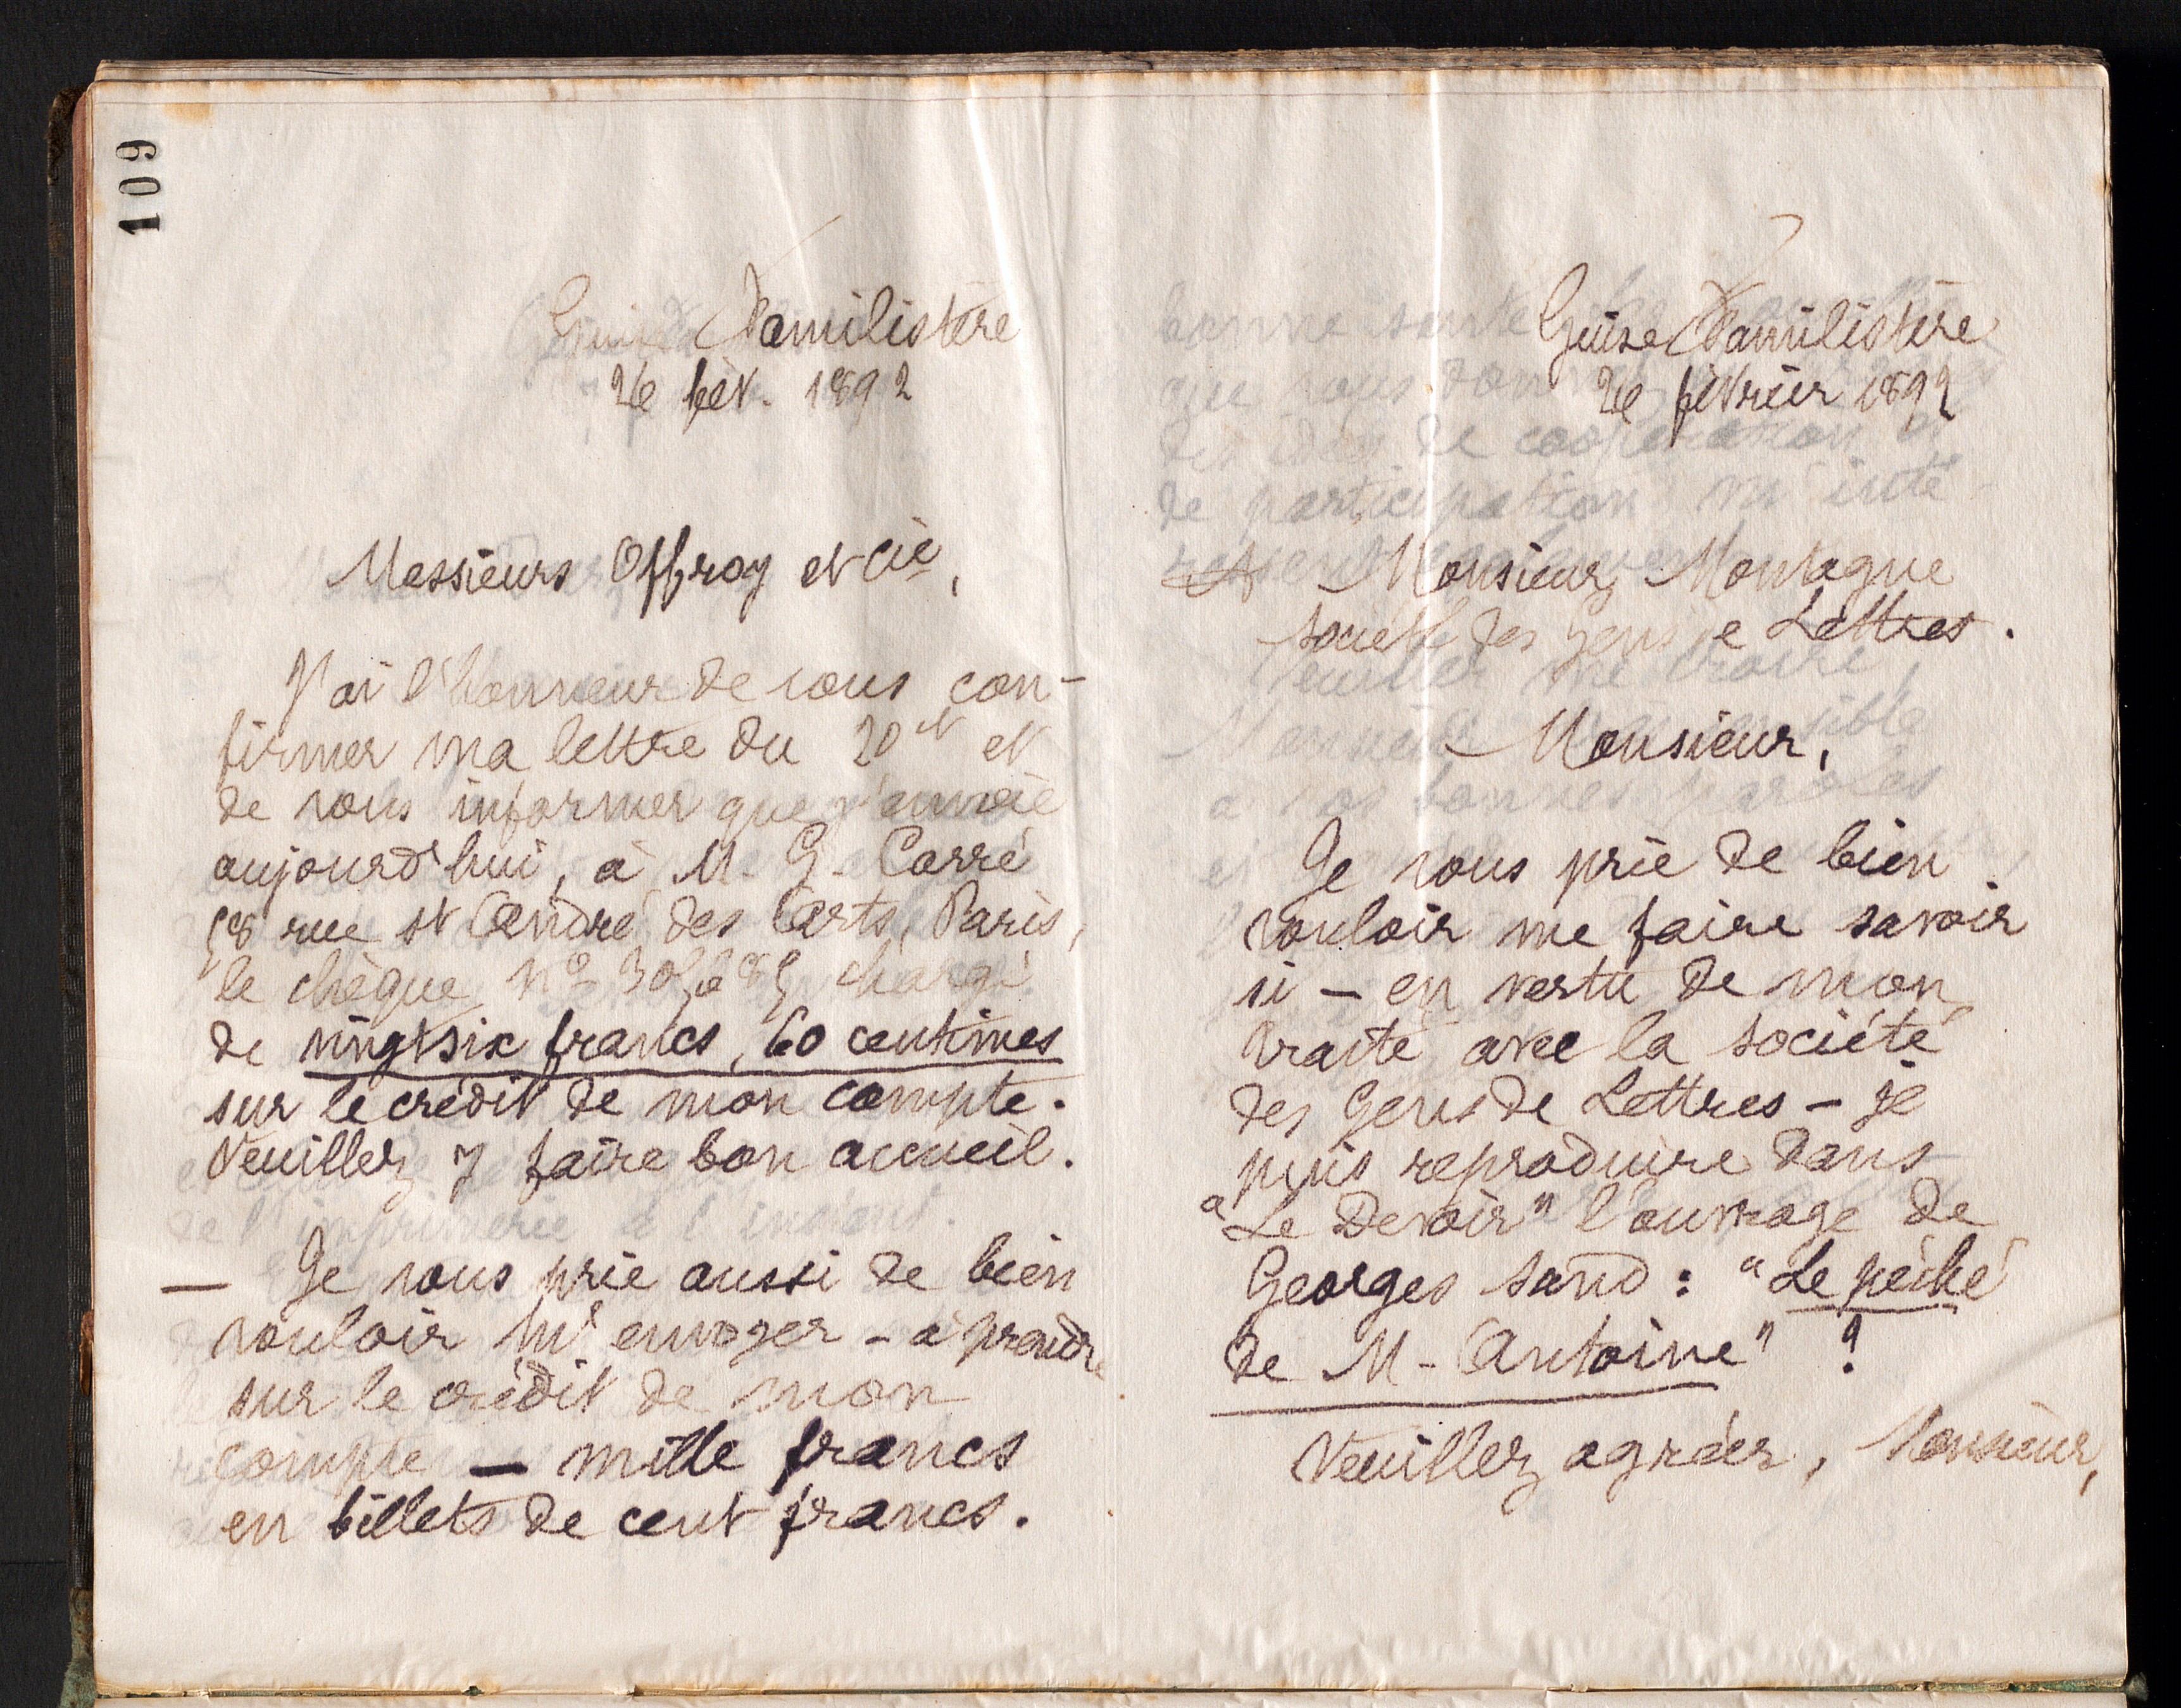 109
Guise Familistère
26 fév. 1892
Messieurs Offroy et Cie,
J'ai l'honneur de vous con-
firmer ma lettre du 20 ct et
de vous informer que j'envoie
aujourd'hui, à M. G. Carré
58 rue St André des Arts, Paris,
le chèque no chargé
de vingt six francs, 60 centimes
sur le crédit de mon compte.
Veuillez y faire bon accueil.
— Je vous prie aussi de bien
vouloir m'envoyer - à prendre
sur le crédit de mon
compte — mille francs
en billets de cent francs.
Guise Familistère
26 février 1892
A Monsieur Montagne
Société des Gens de Lettres.
Monsieur,
Je vous prie de bien
vouloir me faire savoir
si — en vertu de mon
traité avec la Société
des Gens de Lettres — je
puis reproduire dans
"Le Devoir" l'ouvrage de
Georges Sand : "Le péché
de M. Antoine" ?
Veuillez agréer, Monsieur,